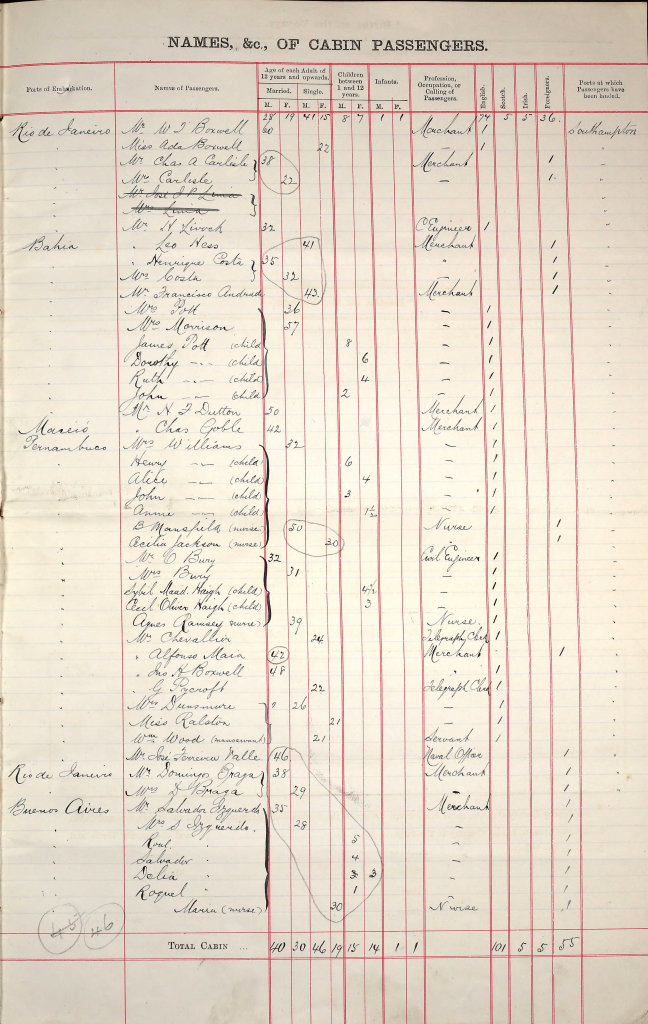 NAMES, &c., OF CABIN PASSENGERS.
Ports of Embarkation. Names of Passengers. Age of each Adult of 12 years and upwards. Married. M. F. Single. M. F. Children between 1 and 12 years. M. F. Infants. M. F. Profession, Occupation, or Calling of Passengers. English. Scotch. Irish. Foreigners. Ports at which Passengers have been landed.
28 19 41 15 8 7 1 1 74 5 5 36
Rio de Janeiro Mr W F Boxwell 60 Merchant 1 Southampton
Miss Ada Boxwell 22 — 1
Mr Chas A Carlisle 38 Merchant 1
Mrs Carlisle 22 — 1
Mr José J P
Mrs
Mr H 32 C Engineer 1
Bahia " Leo Hess 41 Merchant 1
" Henrique Costa 35 " 1
Mrs Costa 32 — 1
Mr Francisco Andrade 43 Merchant 1
Mrs Pott 36 — 1
Mrs Morrison 57 — 1
James Pott (child) 8 — 1
Dorothy — (child) 6 — 1
Ruth — (child) 4 — 1
John — (child) 2 — 1
Mr H F Dutton 50 Merchant 1
Maceió " Chas Goble 42 Merchant 1
Pernambuco Mrs Williams 32 — 1
Henry — (child) 6 — 1
Alice — (child) 4 — 1
John — (child) 3 — 1
Annie — (child) — 1
B Mansfield (nurse) 50 Nurse 1
Cecilia Jackson (nurse) 30 1
Mr C Bury 32 Civil Engineer 1
Mrs Bury 31 — 1
Sybil Maud Haigh (child) 4½ — 1
Cecil Oliver Haigh (child) 3 — 1
Agnes Ramsey (nurse) 39 Nurse. 1
Mr Chevallier 24 Telegraph Clerk 1
" Alfonso Maia 42 Merchant 1
" Jno H Boxwell 48 " 1
" G Pycroft 22 Telegraph Clerk 1
Mrs Dunsmure 26 — 1
Miss Ralston 21 — 1
Wm Wood (manservant) 21 Servant 1
Mr José Ferreira Valle 46 Naval Officer 1
Rio de Janeiro Mr Domingos Braga 38 Merchant 1
Mrs D Braga 29 — 1
Buenos Aires Mr Salvador Izguerdo 35 Merchant 1
Mrs S Izguerdo. 28 — 1
Roul " 5 — 1
Salvador " 4 — 1
Delia " 3 — 1
Roquel " 1 — 1
Maria (nurse) 30 Nurse 1
45 46
TOTAL CABIN ... 40 30 46 19 15 14 1 1 101 5 5 55